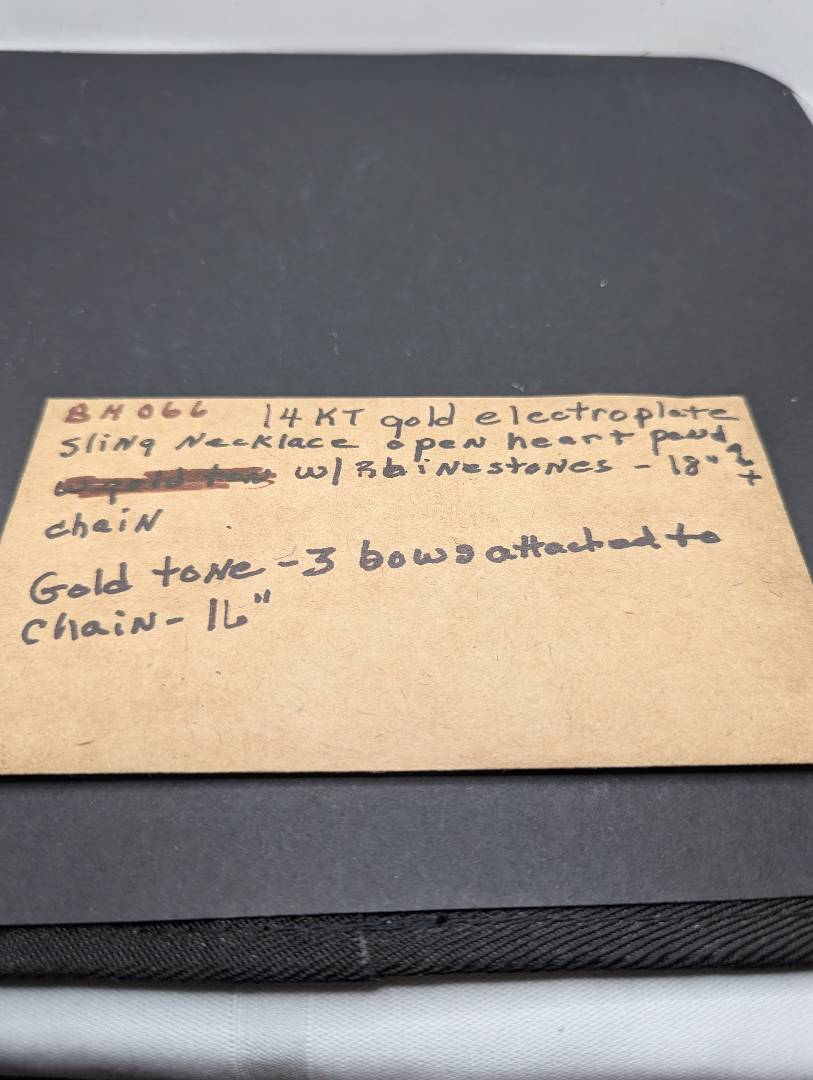 BH066 14KT gold electroplate
Sling Necklace open heart pend
w/ Rhinestones - 18" +
chain
Gold tone - 3 bows attached to
chain - 16"